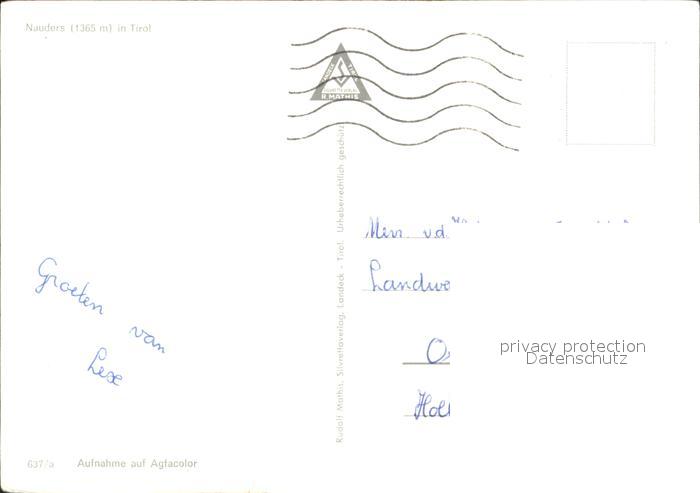 Nauders (1365 m) in Tirol
R. MATHIS
Rudolf Mathis, Silvrettaverlag, Landeck - Tirol. Urheberrechtlich geschützt
Groeten
van
Lex
vd
privacy protection
Datenschutz
637/a Aufnahme auf Agfacolor